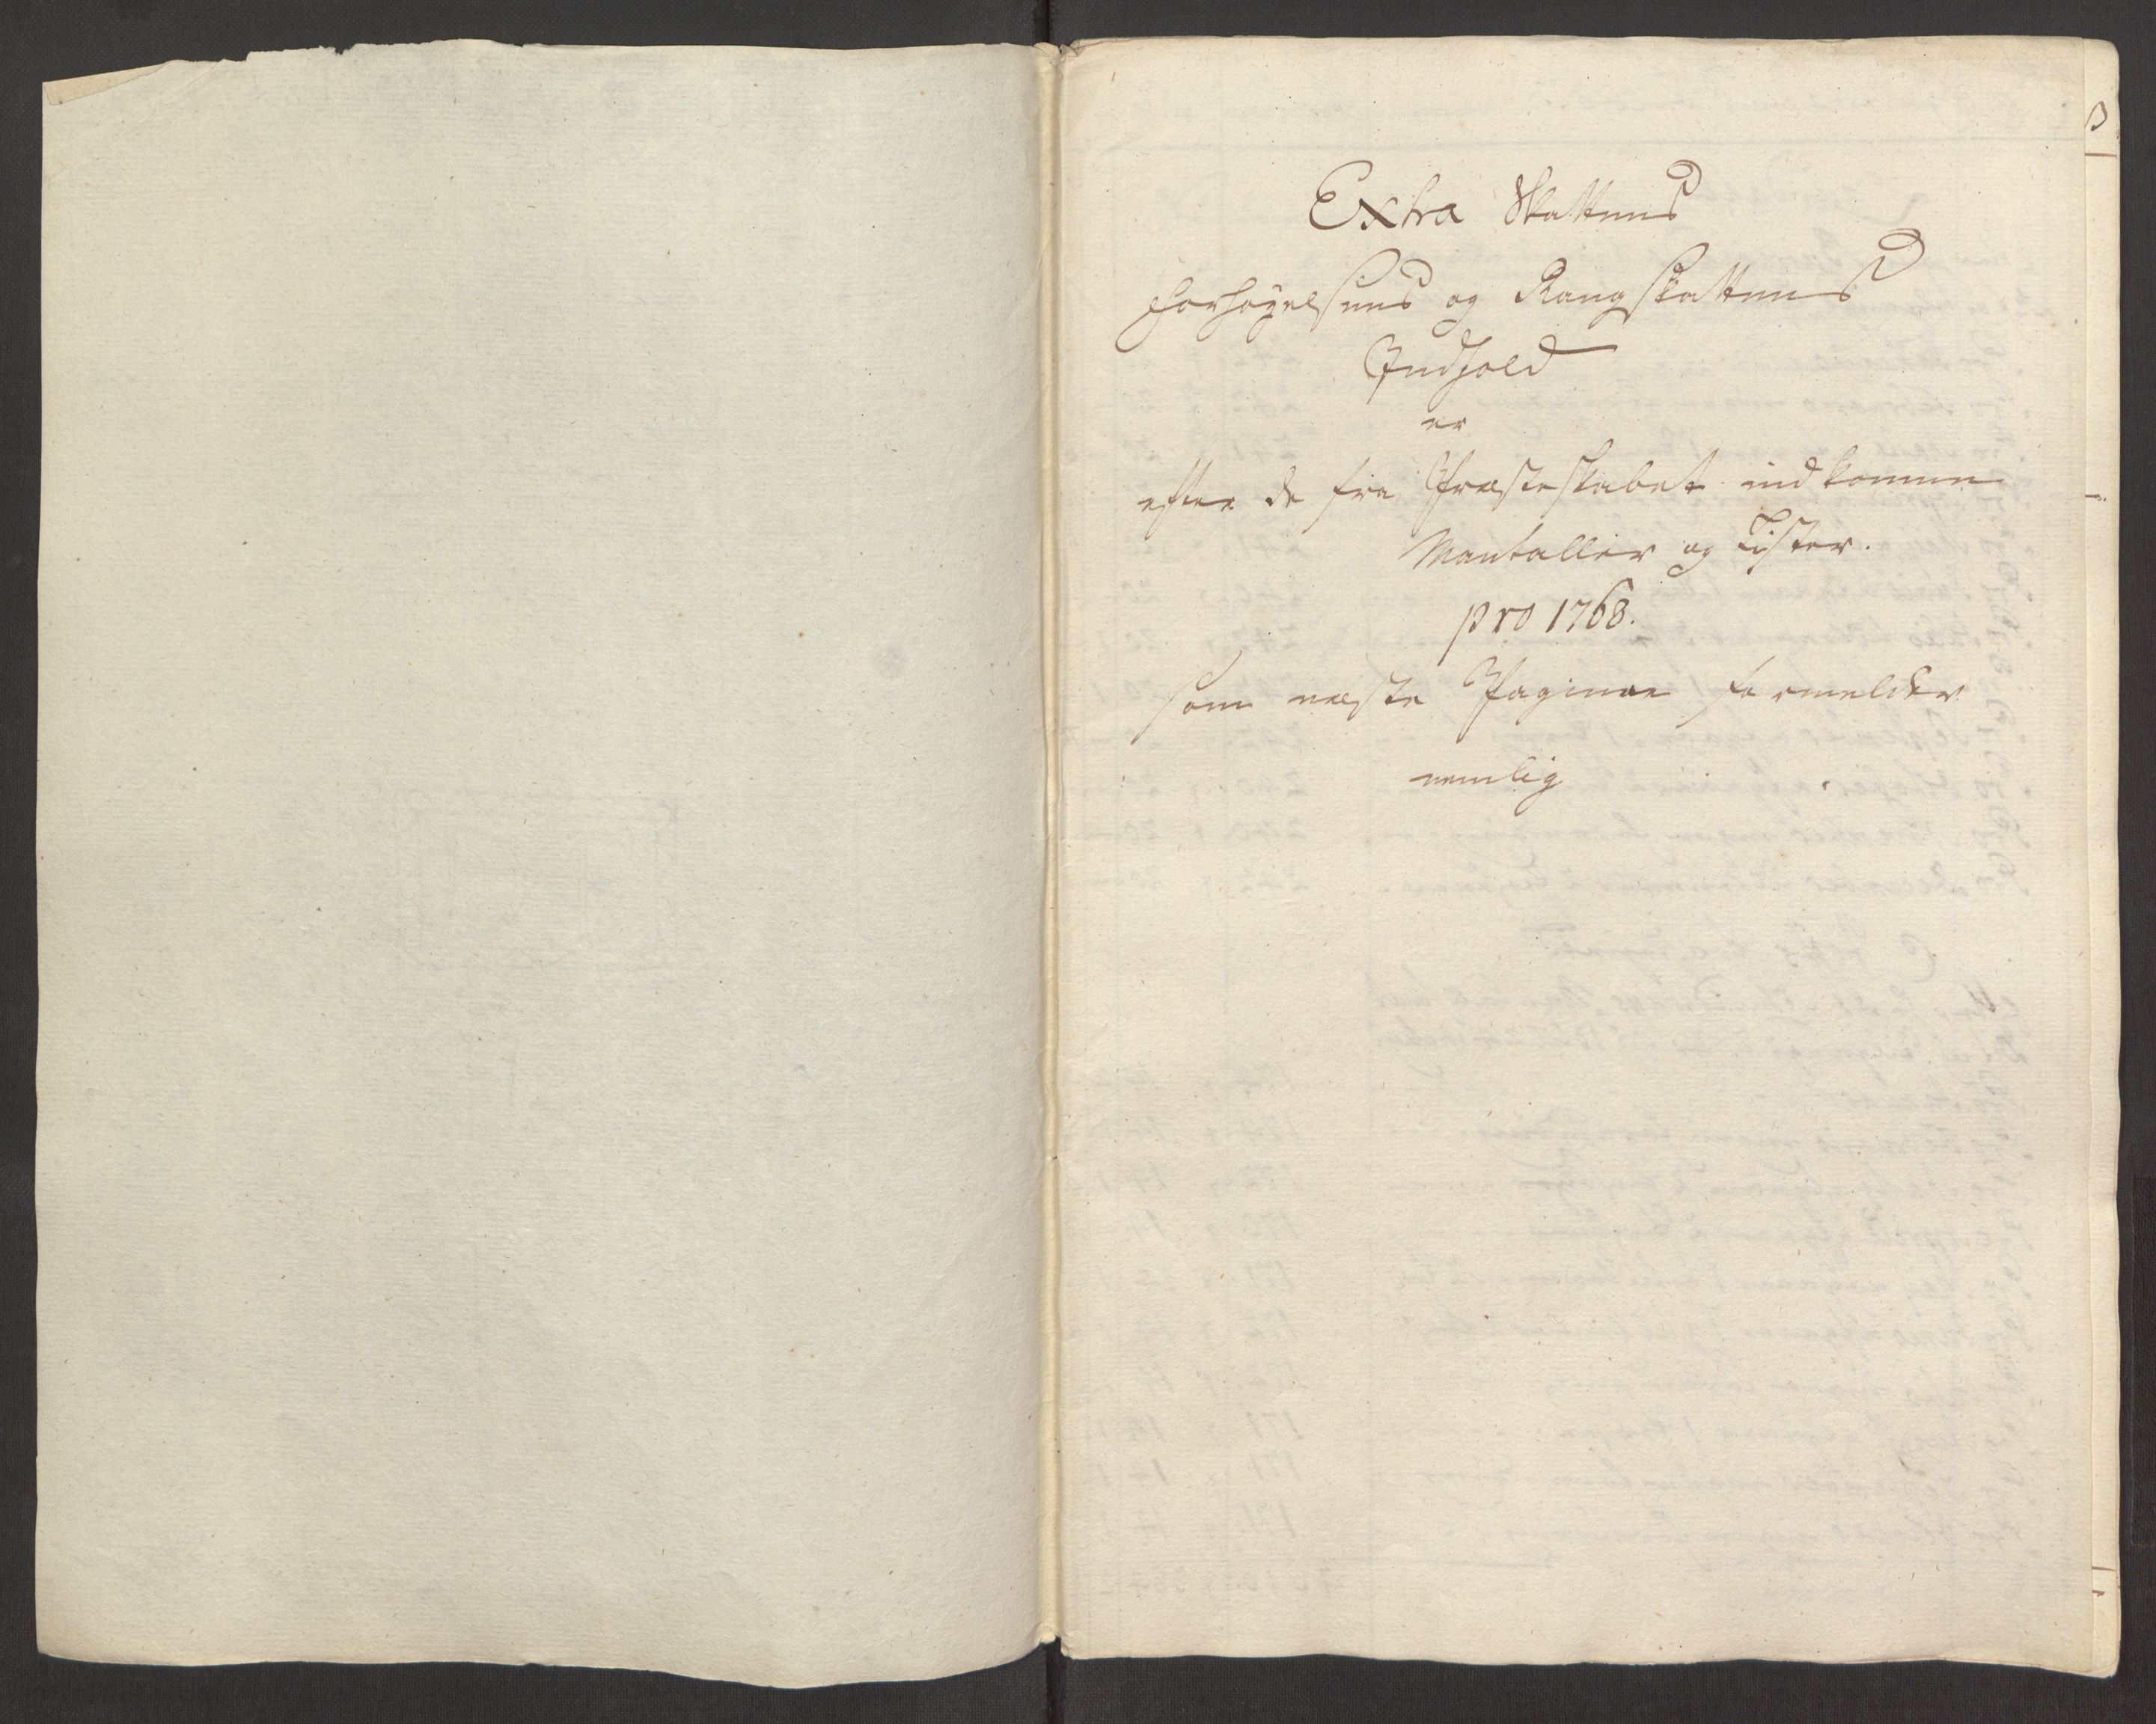 Extra Skattens
Forhøyelsens og Rangskattens
Indhold
er
efter de fra Præsteskabet indkomne
Mantaller og Lister.
pro 1768.
som næste Paginae formelder
nemlig